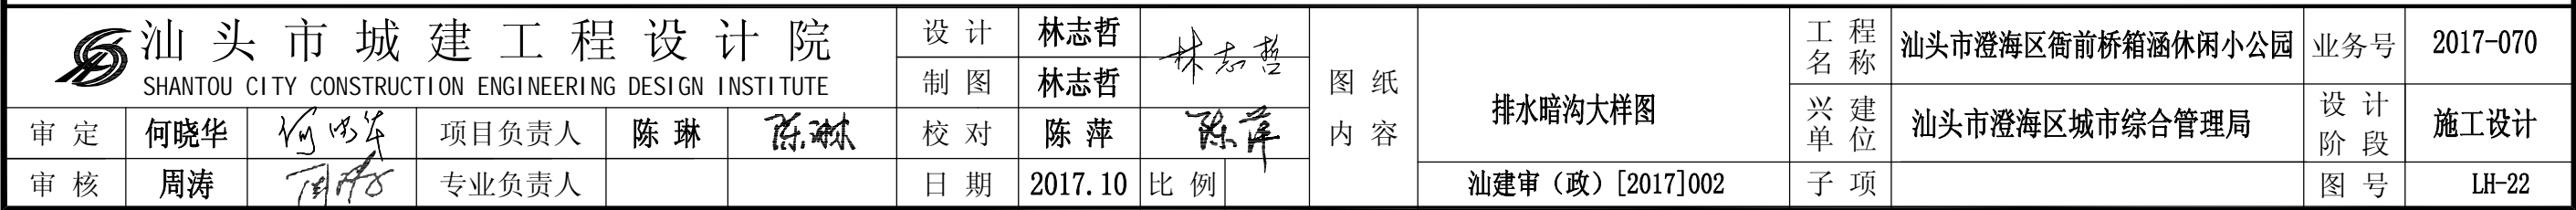 汕头市城建工程设计院
SHANTOU CITY CONSTRUCTION ENGINEERING DESIGN INSTITUTE
审定 何晓华 何晓华 项目负责人 陈琳 陈琳
审核 周涛 周涛 专业负责人
设计 林志哲 林志哲
制图 林志哲
校对 陈萍 陈萍
日期 2017.10 比例
图纸
内容
排水暗沟大样图
汕建审（政）[2017]002
工程
名称
汕头市澄海区衙前桥箱涵休闲小公园
业务号 2017-070
兴建
单位
汕头市澄海区城市综合管理局
设计
阶段
施工设计
子项
图号 LH-22